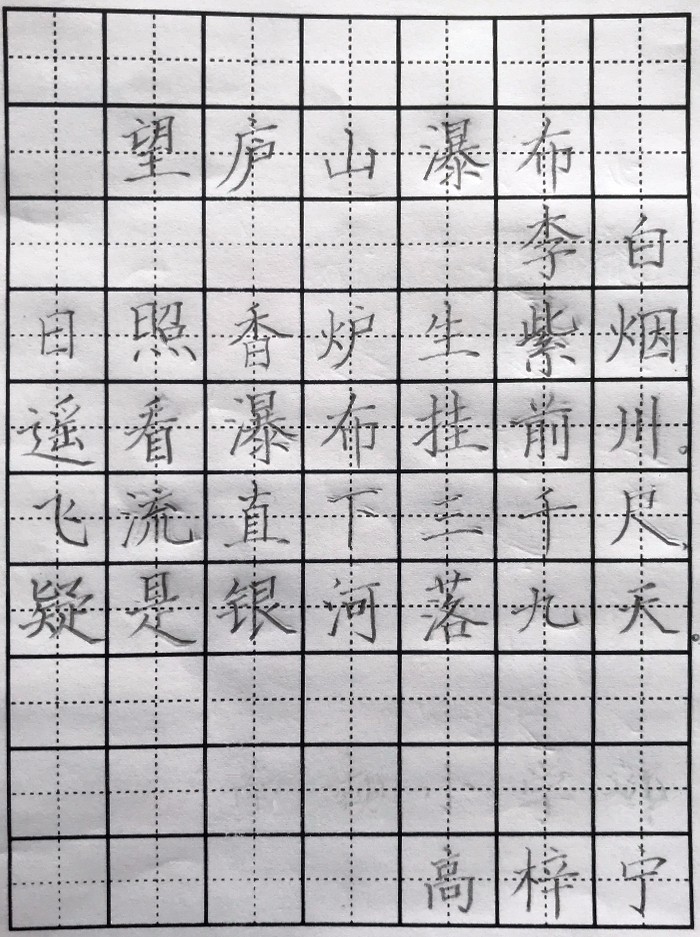 望庐山瀑布
李白
日照香炉生紫烟
遥看瀑布挂前川。
飞流直下三千尺,
疑是银河落九天。
高梓宁